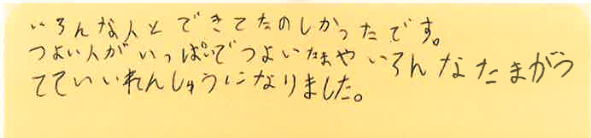 いろんな人とできてたのしかったです。
つよい人がいっぱいでつよいたまやいろんなたまがう
てていいれんしゅうになりました。